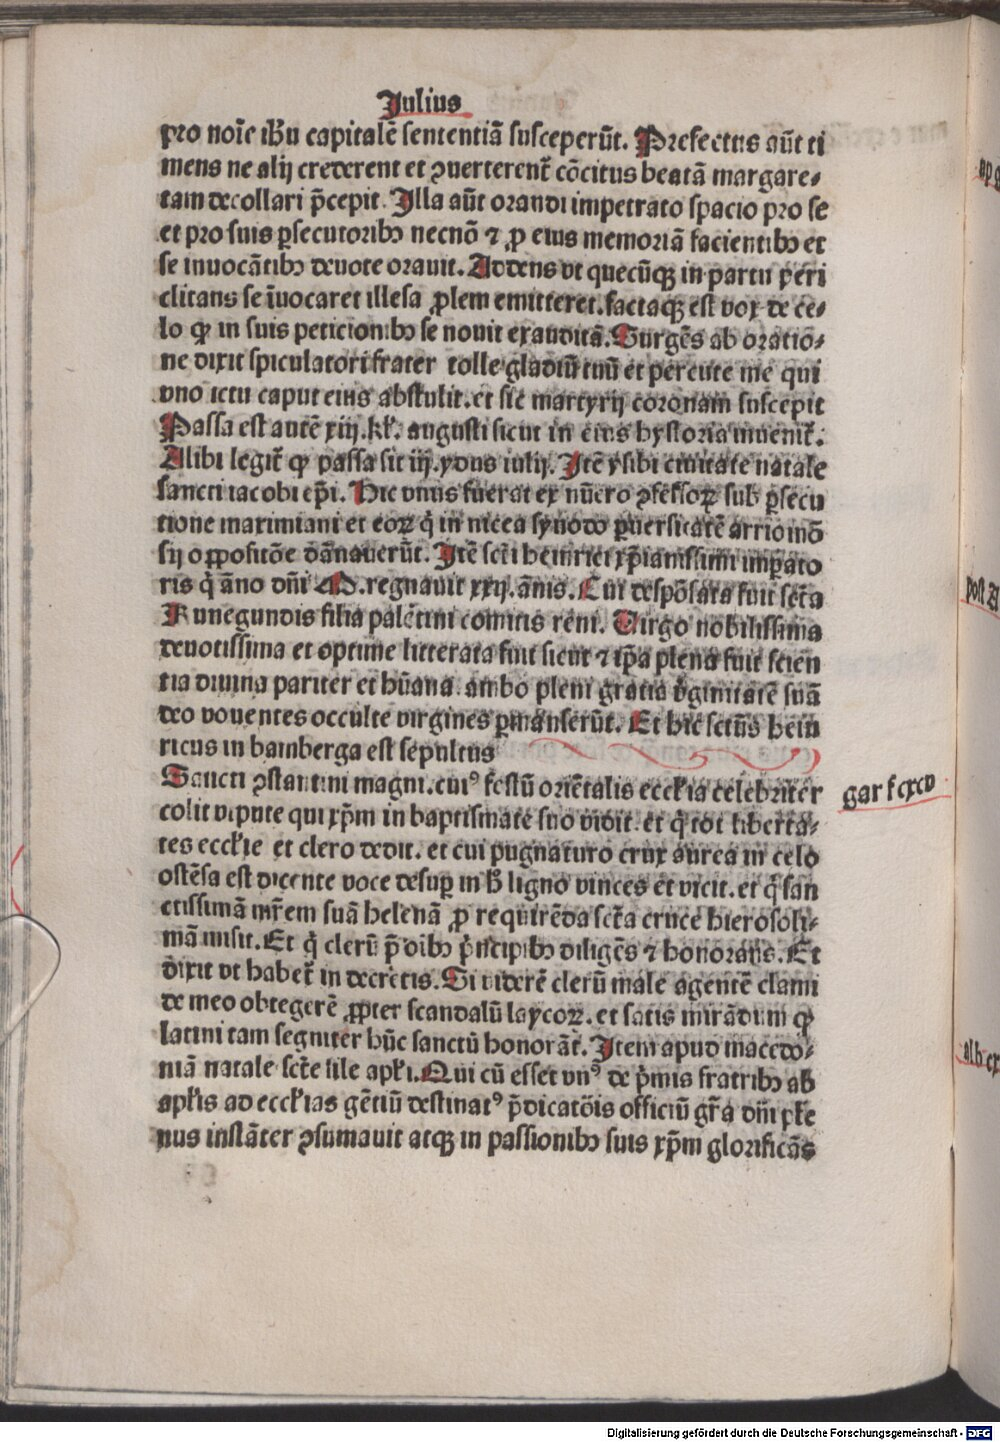 Julius
pro noīe ihū capitalē sententiā susceperūt. Prefectus aūt ti
mens ne alij crederent et ꝯuerterent᷑ cōcitus beatā margare⸗
tam decollari p̄cepit. Illa aūt orandi impetrato spacio pro se
et pro suis ꝑsecutoribꝫ necnō ⁊ ꝓ eius memoriā facientibꝫ et
se inuocātibꝫ deuote orauit. Addens vt quecūqꝫ in partu peri
clitans se īuocaret illesa ꝓlem emitteret. factaqꝫ est vox de ce⸗
lo ꝙ in suis peticionibꝫ se nouit exauditā. Surgēs ab oratio⸗
ne dixit spiculatori frater tolle gladiū tuū et percute me qui
vno ictu caput eius abstulit. et sic martyrij coronam suscepit
Passa est autē xiij. kł. augusti sicut in eius hystoria inuenit᷑.
Alibi legit᷑ ꝙ passa sit iij. ydus iulij. Itē ysibi ciuitate natale
sancti iacobi ep̄i. Hic vnus fuerat ex nūero ꝯfessoꝝ sub ꝑsecu
tione maximiani et eoꝝ q̇ in nicea synodo ꝑuersitatē arrio mō
sij oꝓpositōe dānauerūt. Itē scti heinrici xp̄ianissimi imꝑato
ris q̇ āno dn̄i M. regnauit xxij. ānis. Cui despōsata fuit sctā
Kunegundis filia palētini comitis reni. Virgo nobilissima
deuotissima et optime litterata fuit sicut ⁊ ip̄a plena fuit scien
tia diuina pariter et hūana. ambo pleni gratia v̓ginitatē suā
deo vouentes occulte virgines ꝑmanserūt. Et hic sctūs hein
ricus in bamberga est sepultus
Sancti ꝯstantini magni. cuiꝰ festū oriētalis ecclīa celebrit᷑er
colit vtpute qui xp̄m in baptismate suo vidit. et q̇ tot liberta⸗
tes ecclīe et clero dedit. et cui pugnaturo crux aurea in celo
ostēsa est dicente voce desuꝑ in h̄ ligno vinces et vicit. et q̇ san
ctissimā mr̄em suā helenā ꝓ requirēda sctā cruce hierosoli⸗
mā misit. Et q̇ clerū p̄ oībꝫ p̓ncipibꝫ diligēs ⁊ honorans. Et
dixit vt habet᷑ in decretis. Si viderē clerū male agentē clami
de meo obtegerē ꝓpter scandalū laycoꝝ. et satis mirādum ꝙ
latini tam segniter hūc sanctū honorāt᷑. Item apud macedo⸗
niā natale sctē sile apłi. Qui cū esset vnꝰ de p̓mis fratribꝫ ab
apłis ad ecclīas gētiū destinatꝰ p̄dicatōis officiū gr̄a dn̄i xł̄e
nus instāter ꝯsumauit atqꝫ in passionibꝫ suis xp̄m glorificās
Digitalisierung gefördert durch die Deutsche Forschungsgemeinschaft - DFG